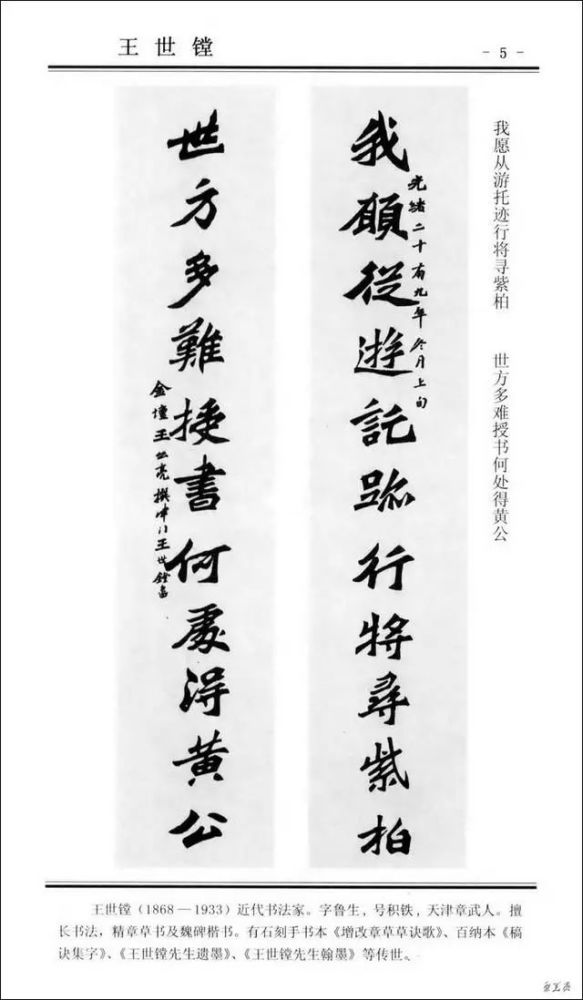 王世镗
- 5 -
我愿从游托迹行将寻紫柏　世方多难授书何处得黄公
我願從遊託跡行將尋紫柏
光緒二十有九年冬月上旬
世方多難授書何處淂黄公
金壇王亮撰津门王世鏜書
王世镗（1868—1933）近代书法家。字鲁生，号积铁，天津章武人。擅
长书法，精章草书及魏碑楷书。有石刻手书本《增改章草草诀歌》、百纳本《稿
诀集字》、《王世镗先生遗墨》、《王世镗先生翰墨》等传世。